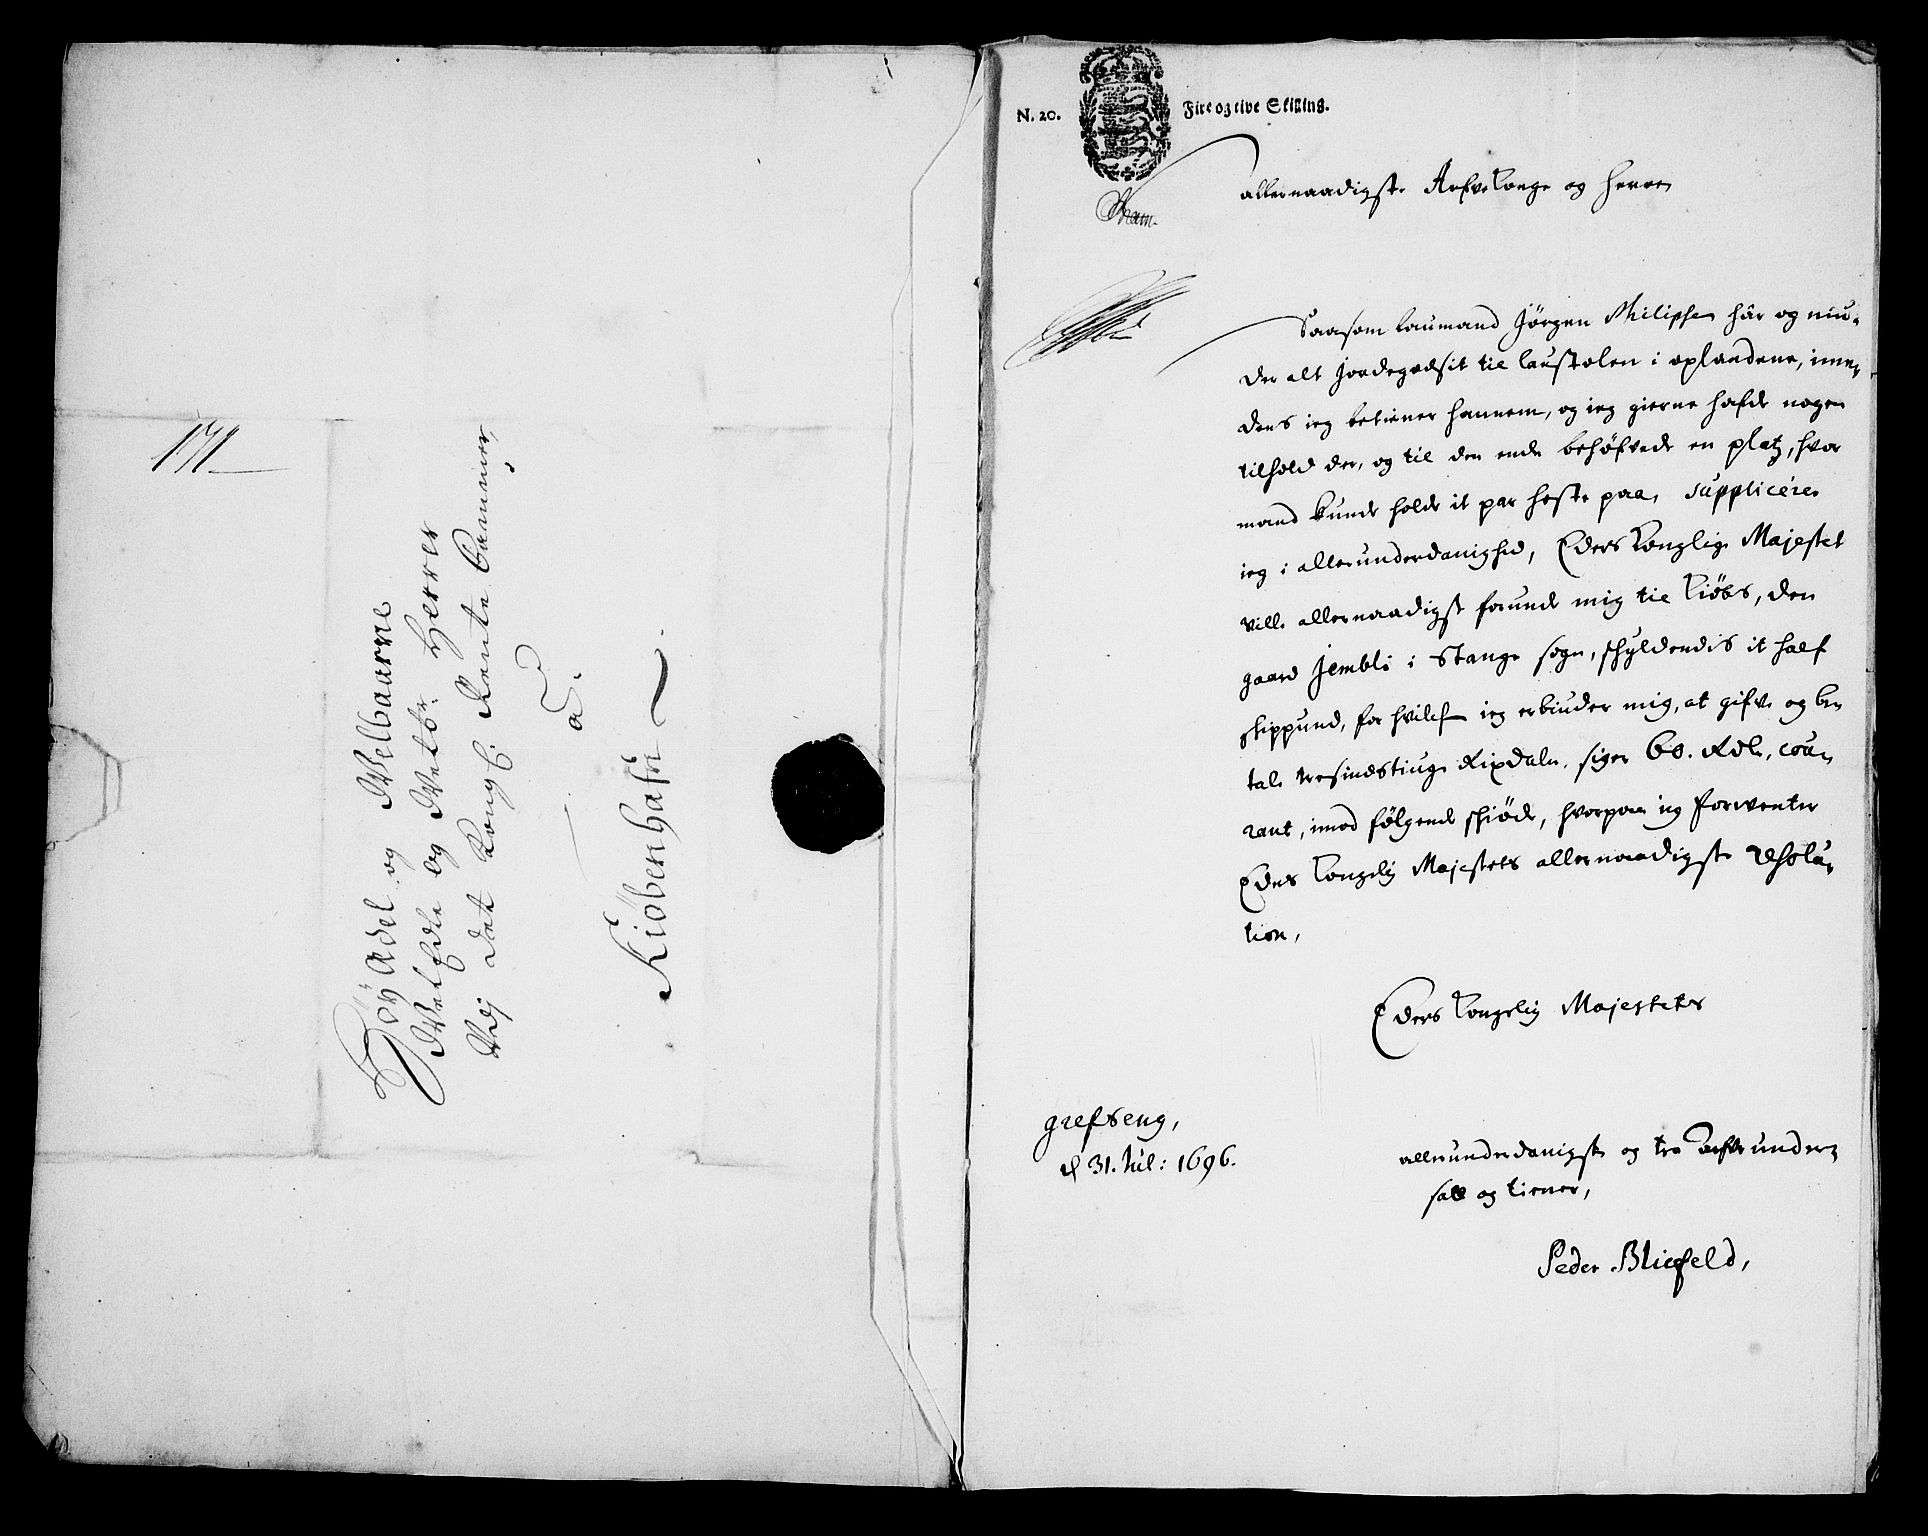 171
Höy Adel og Welbaarne
WelEdle og Welbr: Herrer
Ved det Kongl: Rente Cammer,
a.
Kiöbenhafn
N. 20.
Fire og tive Skilling.
allernaadigste Arfve Konge og Herre
Saasom laumand Jörgen Philipsen här og niu-
der alt Jordegodsit til laustolen i oplandene, imi-
dens ieg betiener hannem, og ieg gierne hafde nogen
tilhold der, og til den ende behöfvede en platz, hvor
mand kunde holde it par heste paa, suppliceres
ieg i allerunderdanighed, Eders Konglig Majestet
ville allernaadigst forunde mig til Kiöbs, den
gaard Jembli i Stange sogn, schyldendis it half
skippund, for hvilchen ieg erbiuder mig, at gifve og be-
tale tresindstiuge Rixdaler, siger 60. Rdl. cou-
rant, imod fölgende schiöde, hvorpaa ieg forwenter
Eders Kongelig Majestets allernaadigste resolu-
tion,
Eders Kongelig Majestets
grefseng,
d 31. Jul: 1696.
allerunderdanigste og tro arfve under-
satt og tiener,
Peder Bliefeld,